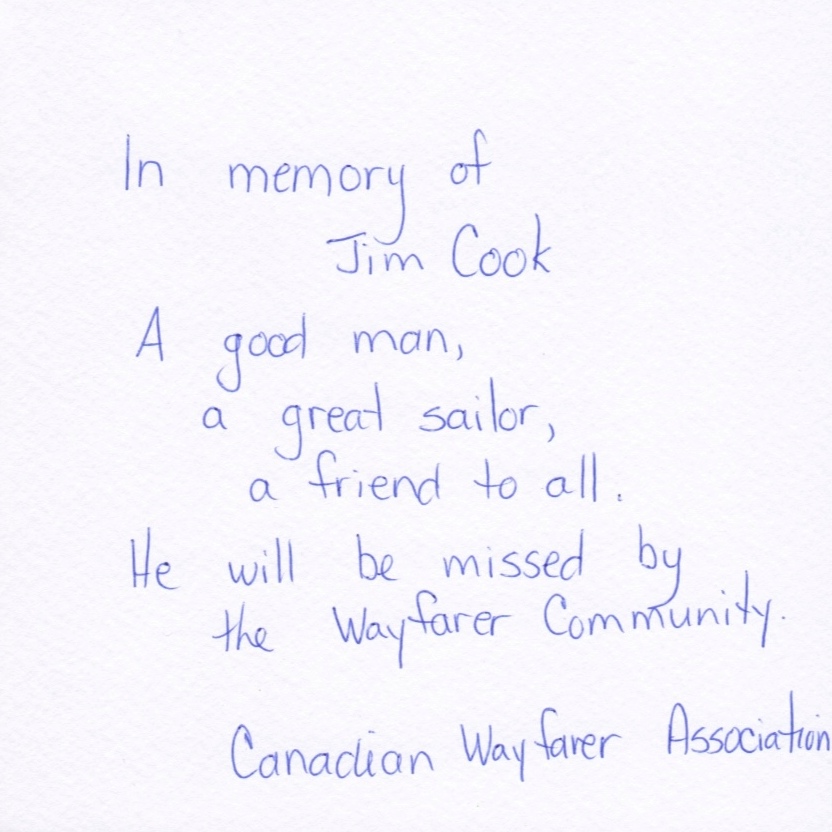 In memory of
Jim Cook
A good man,
a great sailor,
a friend to all.
He will be missed by
the Wayfarer Community.
Canadian Wayfarer Association